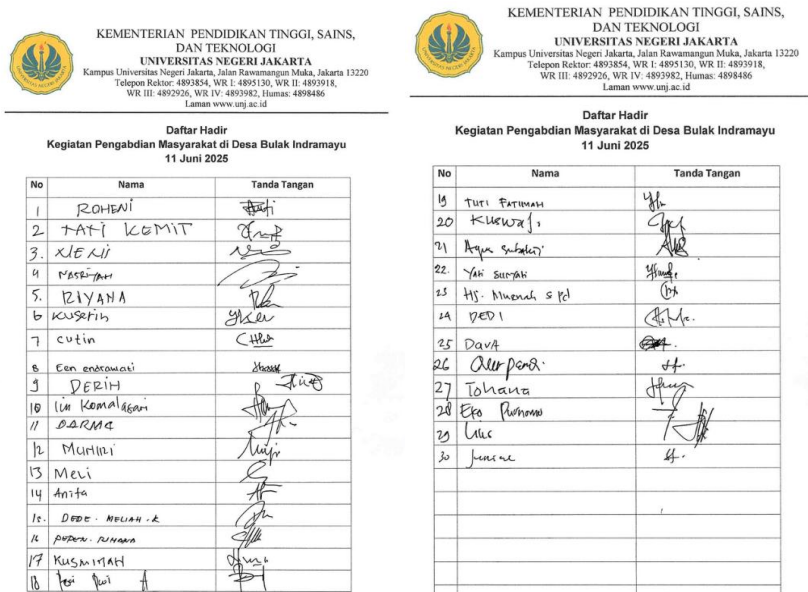 KEMENTERIAN PENDIDIKAN TINGGI, SAINS,
DAN TEKNOLOGI
UNIVERSITAS NEGERI JAKARTA
Kampus Universitas Negeri Jakarta, Jalan Rawamangun Muka, Jakarta 13220
Telepon Rektor: 4893854, WR I: 4895130, WR II: 4893918,
WR III: 4892926, WR IV: 4893982, Humas: 4898486
Laman www.unj.ac.id
Daftar Hadir
Kegiatan Pengabdian Masyarakat di Desa Bulak Indramayu
11 Juni 2025
No Nama Tanda Tangan
1 ROHENI
2 TATI KEMIT
3.
4 NASRIYAH
5. RIYANA
6 Kuserin
7 cutin
8 Een endrawati
9 DERIH
10 Iin Komalasari
11 DARMA
12 MUHIRI
13 Meli
14 Anita
15. DEDE. MELIAH. K
16 PEPEN. RIHANA
17 KUSMIMAH
18 Dwi A
KEMENTERIAN PENDIDIKAN TINGGI, SAINS,
DAN TEKNOLOGI
UNIVERSITAS NEGERI JAKARTA
Kampus Universitas Negeri Jakarta, Jalan Rawamangun Muka, Jakarta 13220
Telepon Rektor: 4893854, WR I: 4895130, WR II: 4893918,
WR III: 4892926, WR IV: 4893982, Humas: 4898486
Laman www.unj.ac.id
Daftar Hadir
Kegiatan Pengabdian Masyarakat di Desa Bulak Indramayu
11 Juni 2025
No Nama Tanda Tangan
19 TUTI FATIMAH
20
21 Agus
22. Yati Sumyati
23 Hj. Muenah S Pd
24 DEDI
25 Dava
26
27 Tohana
28 Eko Purnomo
29
30